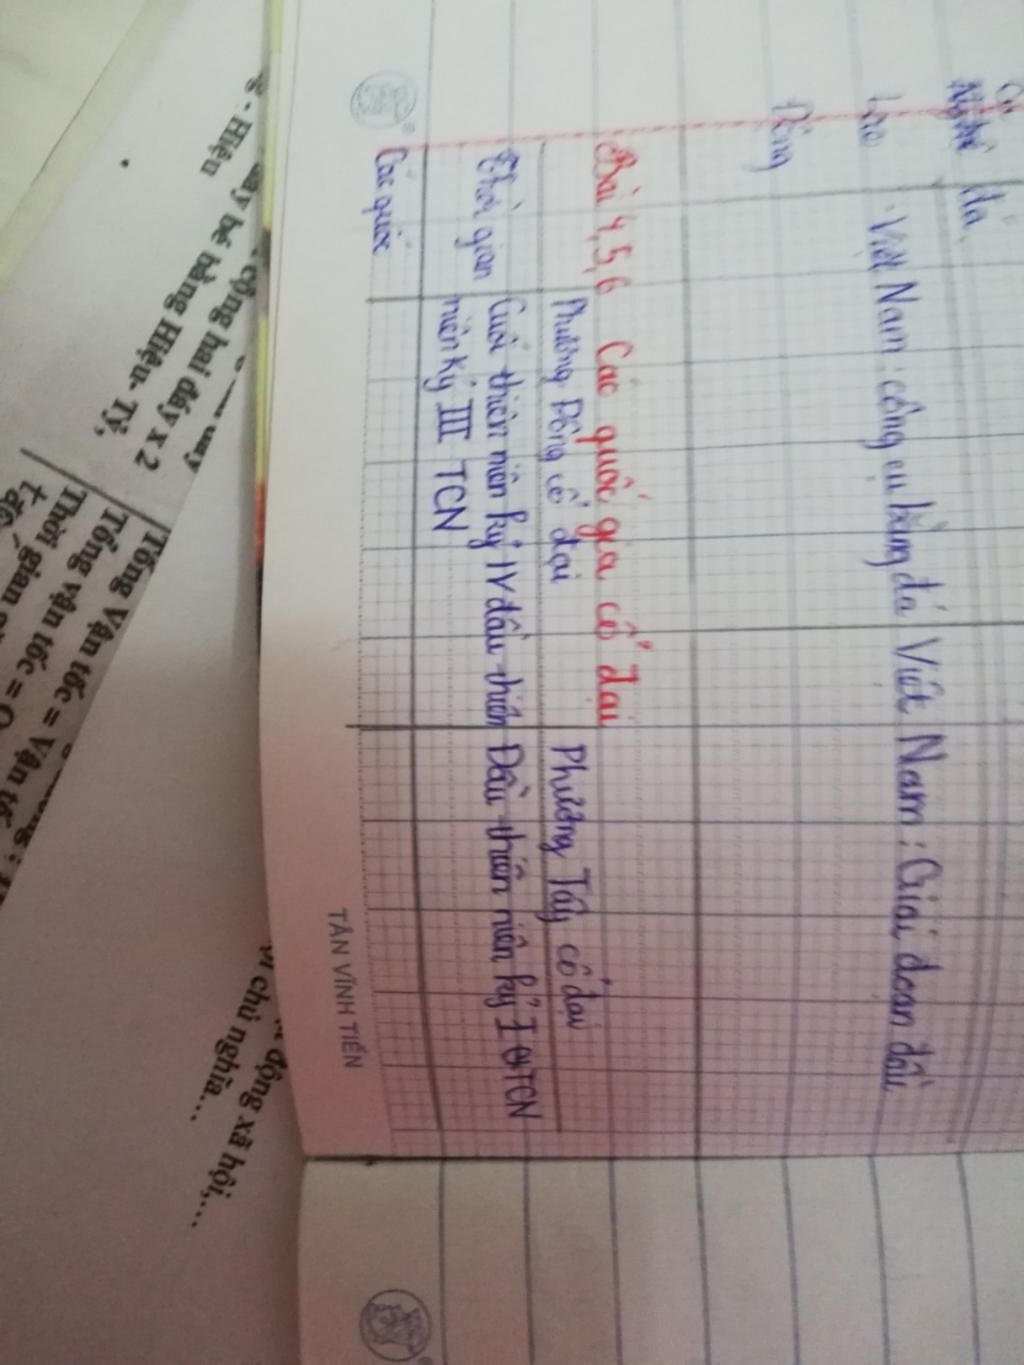 đá
Lao Việt Nam: công cụ bằng đá Việt Nam: Giai đoạn đầu
Động
Bài 4,5,6 Các quốc gia cổ đại
Phương Đông cổ đại Phương Tây cổ đại
Thời gian Cuối thiên niên kỷ IV đầu thiên Đầu thiên niên kỷ I TCN
niên kỷ III TCN
Các quốc
TÂN VĨNH TIẾN
cộng hai đáy x 2
đáy bé bằng Hiệu- Tỷ,
- Hiệu
Tổng Vận tốc = Vận tố
Tổng vận tốc =
Thời gian
động xã hội,...
chủ nghĩa...